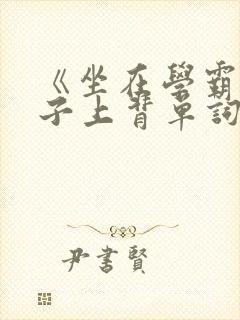 《坐在學霸
子上背單詞
尹書賢